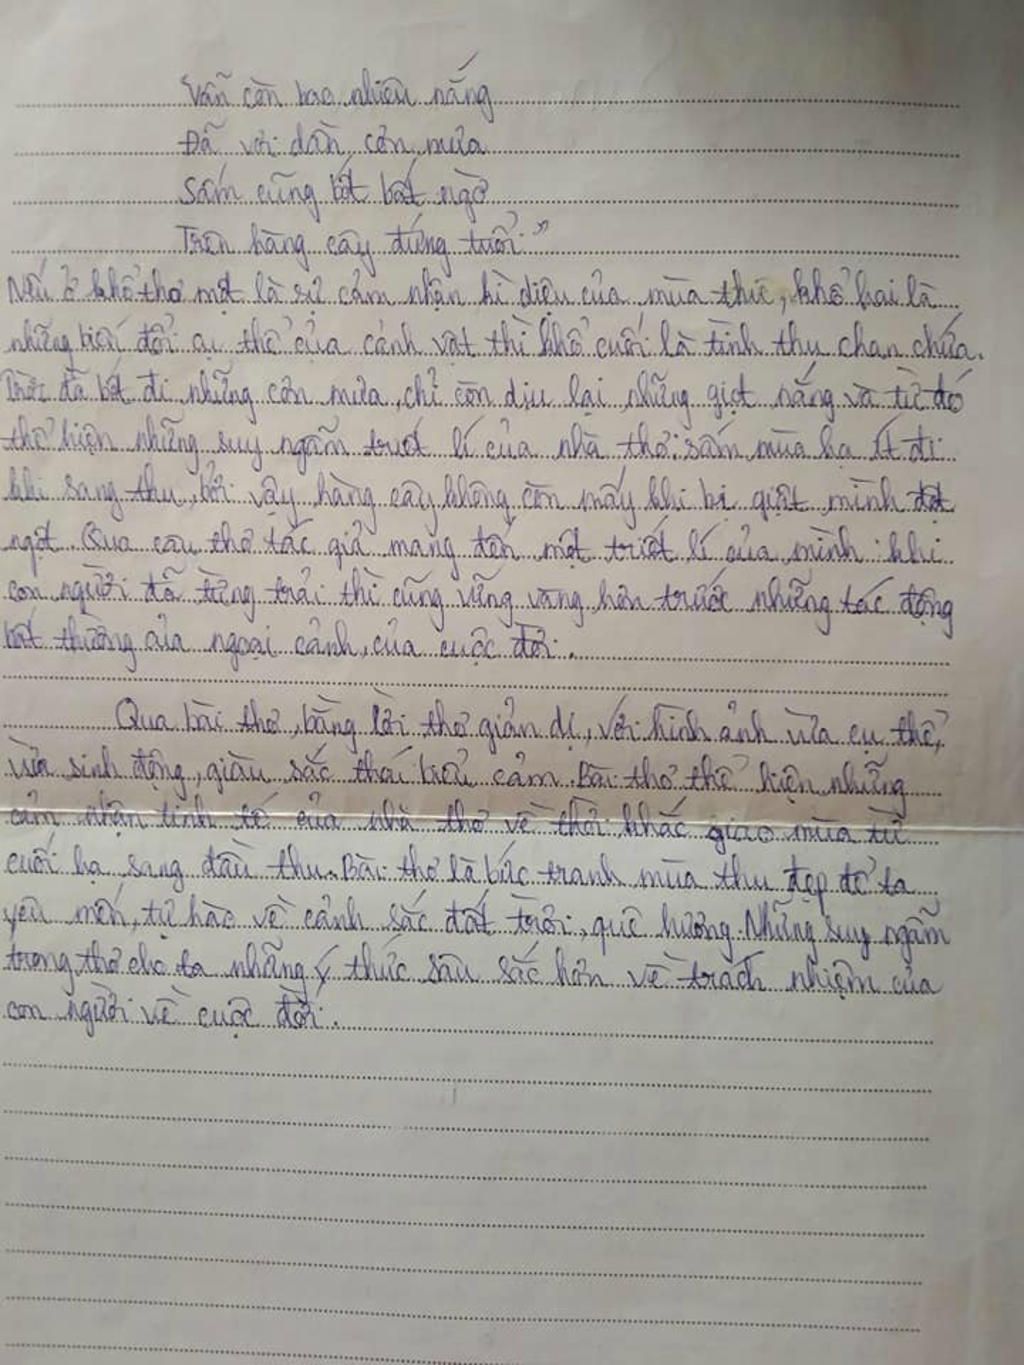 Vẫn còn bao nhiêu nắng
Đã vơi dần cơn mưa
Sấm cũng bớt bất ngờ
Trên hàng cây đứng tuổi"
Nếu ở khổ thơ một là sự cảm nhận kì diệu của mùa thu, khổ hai là
những biến đổi cụ thể của cảnh vật thì khổ cuối là tình thu chan chứa.
Trời đã bớt đi những cơn mưa, chỉ còn dịu lại những giọt nắng và từ đó
thể hiện những suy ngẫm triết lí của nhà thơ: sấm mùa hạ ít đi
khi sang thu, bởi vậy hàng cây không còn mấy khi bị giật mình đột
ngột. Qua câu thơ tác giả mang đến một triết lí của mình: khi
con người đã từng trải thì cũng vững vàng hơn trước những tác động
bất thường của ngoại cảnh, của cuộc đời.
Qua bài thơ, bằng lời thơ giản dị, với hình ảnh vừa cụ thể,
vừa sinh động, giàu sắc thái biểu cảm. Bài thơ thể hiện những
cảm nhận tinh tế của nhà thơ về thời khắc giao mùa từ
cuối hạ sang đầu thu. Bài thơ là bức tranh mùa thu đẹp để ta
yêu mến, tự hào về cảnh sắc đất trời, quê hương. Những suy ngẫm
trong thơ cho ta những ý thức sâu sắc hơn về trách nhiệm của
con người về cuộc đời.